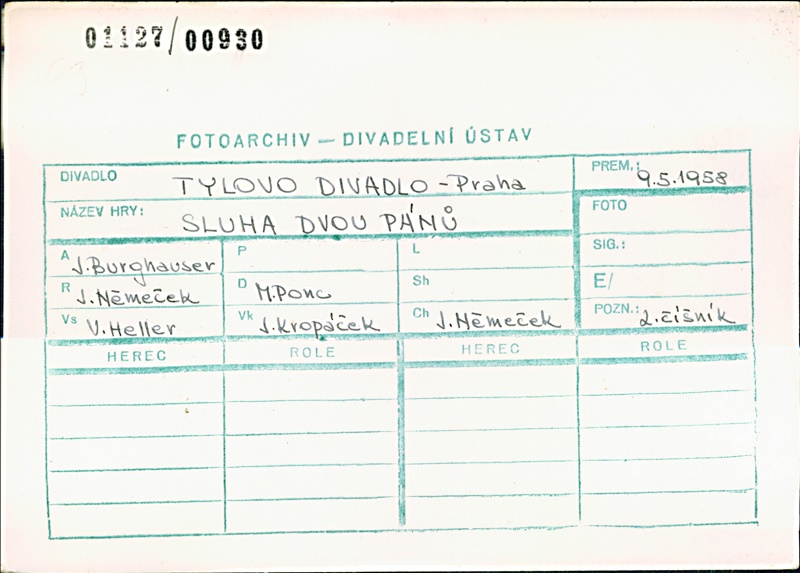 01127/00930
FOTOARCHIV — DIVADELNÍ ÚSTAV
DIVADLO TYLOVO DIVADLO - Praha PREM.: 9.5.1958
NÁZEV HRY: SLUHA DVOU PÁNŮ FOTO
A J.Burghauser P L SIG.:
R J.Němeček D M.Ponc Sh E/
Vs V.Heller Vk J.Kropáček Ch J.Němeček POZN.: 2.číšník
HEREC ROLE HEREC ROLE